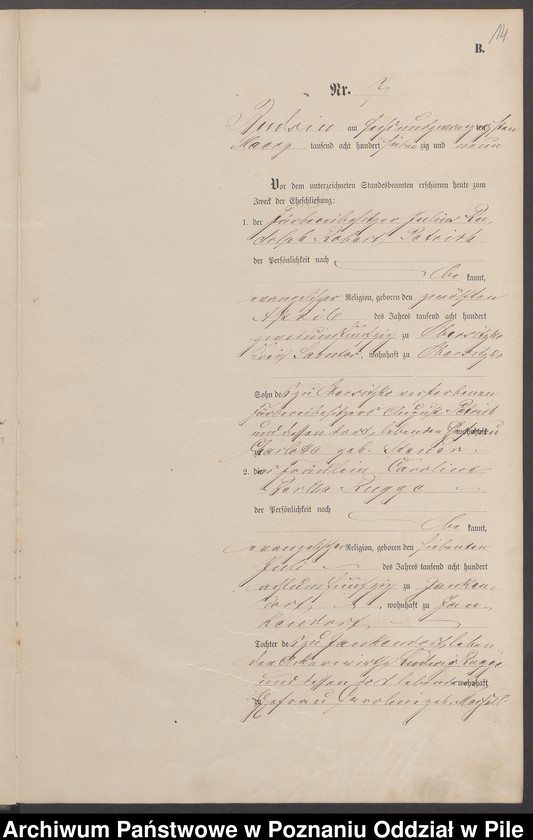 14
B.
Nr. 7
Budsin am sechsundzwanzigsten
Maerz tausend acht hundert siebenzig und neun
Vor dem unterzeichneten Standesbeamten erschienen heute zum
Zweck der Eheschließung:
1. der Färbereibesitzer Julius Ru-
dolph Robert Petrich
der Persönlichkeit nach
be kannt,
evangelischer Religion, geboren den zwölften
April des Jahres tausend acht hundert
fünfzig zu Obersitzko
Kreis Samter, wohnhaft zu Obersitzko
Sohn des zu Obersitzko verstorbenen
Färbereibesitzers August Petrich
und dessen dort lebenden Ehefrau
Charlotte geb.
2. die Fräulein Caroline
Bertha Rugge
der Persönlichkeit nach
be kannt,
evangelischer Religion, geboren den siebenten
Juli des Jahres tausend acht hundert
achtundfünfzig zu Janken-
dorf, wohnhaft zu Jan-
kendorf
Tochter des zu Jankendorf leben-
den Ackerwirths Ludwig Rugge
und dessen dort lebenden wohnhaft
Ehefrau geb.
Archiwum Państwowe w Poznaniu Oddział w Pile